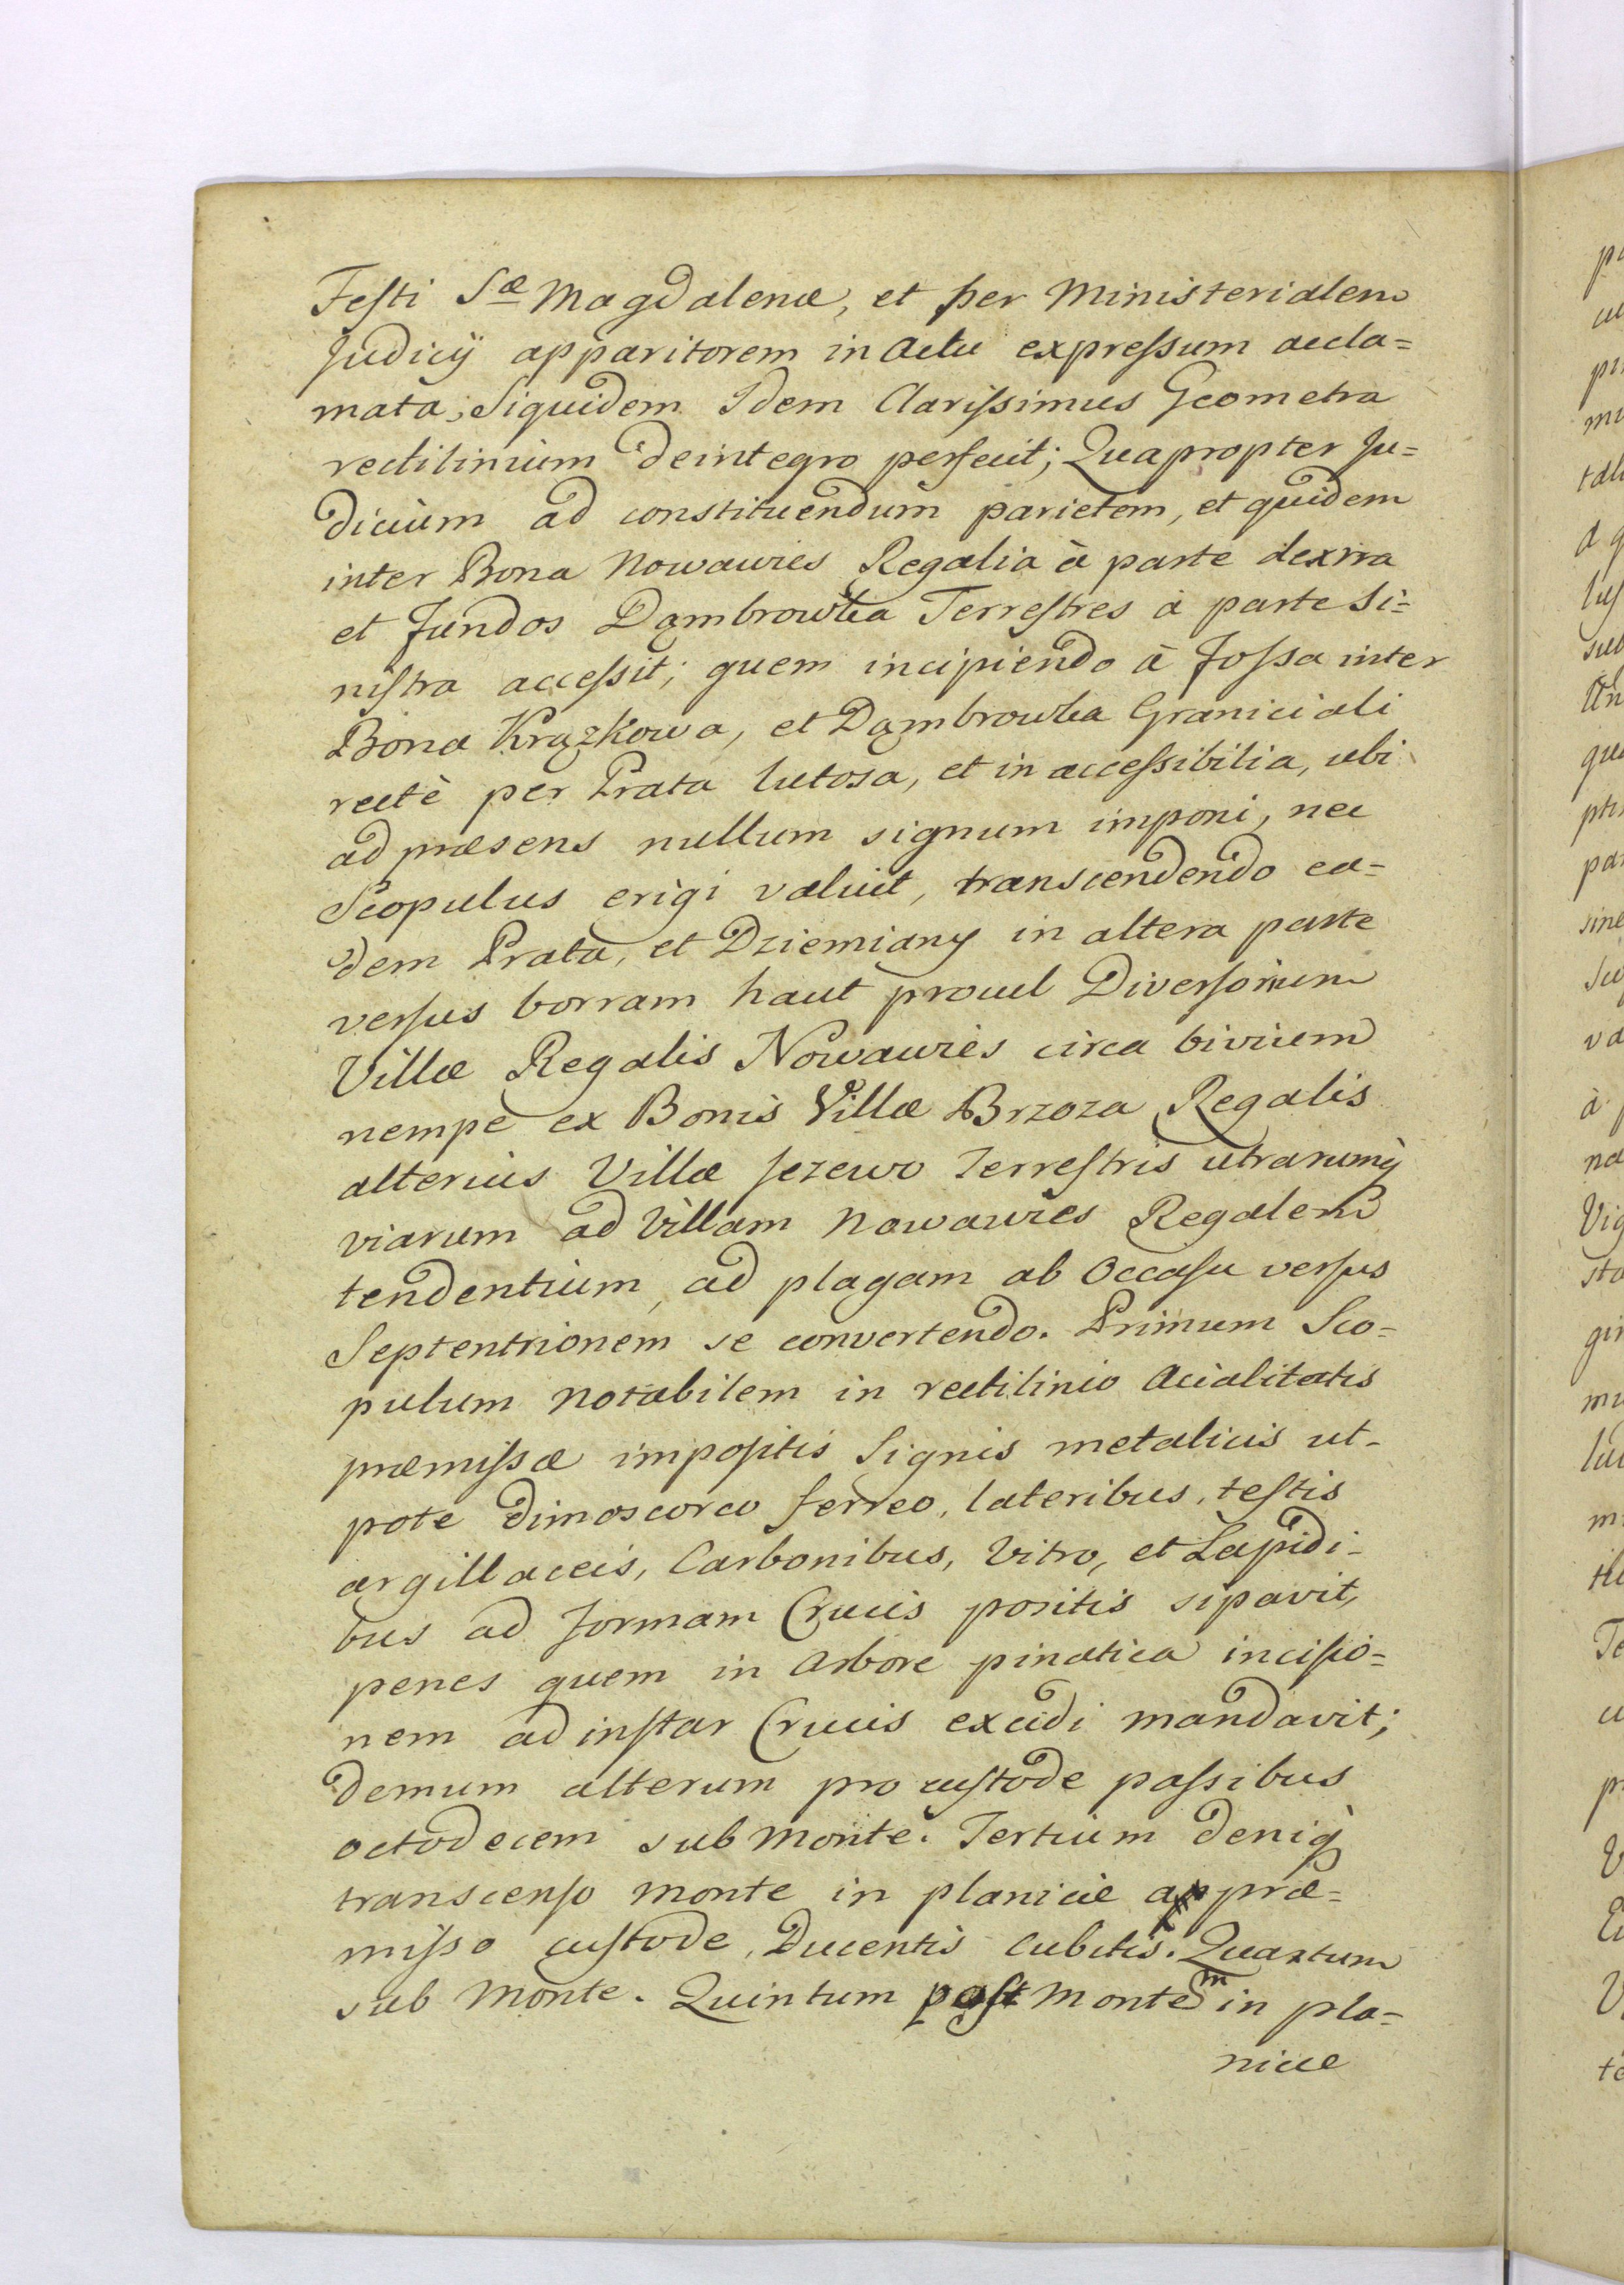 Festi Sæ Magdalenæ, et per Ministerialem
Judicij apparitorem in Actu expressum accla=
mata; Siquidem Idem Clarissimus Geometra
rectilinium deintegro perfecit; Quapropter Ju=
dicium ad constituendum parietem, et quidem
inter Bona Nowawies Regalia à parte dextra
et fundos Dąmbrowka Terrestres à parte Si=
nistra accessit; quem incipiendo à fossa inter
Bona Krązkowa, et Dąmbrowka Graniciali
rectè per Prata lutosa, et in accessibilia, ubi
ad præsens nullum signum imponi, nec
Scopulus erigi valuit, transcendendo ea=
dem Prata, et Dziemiany in altera parte
versus borram haut procul Diversorium
Villæ Regalis Nowawies circa bivium
nempe ex Bonis Villæ Brzoza Regalis
alterius Villæ Jezewo Terrestris utrarumq̀
viarum ad Villam Nowawies Regalem
tendentium, ad plagam ab Occasu versus
Septentrionem se convertendo. Primum Sco=
pulum notabilem in rectilinio Acialitatis
præmissæ impositis Signis metalicis ut-
pote dimoscoreo ferreo, lateribus, testis
argillaceis, Carbonibus, Vitro, et Lapidi-
bus ad formam Crucis positis sipavit,
penes quem in Arbore pinatica incisio=
nem ad instar Crucis excidi mandavit;
Demum alterum pro custode passibus
octodecem sub Monte. Tertium deniq̀
transcenso monte in planicie a præ=
misso custode, Ducentis Cubitis. Quartum
sub Monte. Quintum post Montem in pla=
nicie